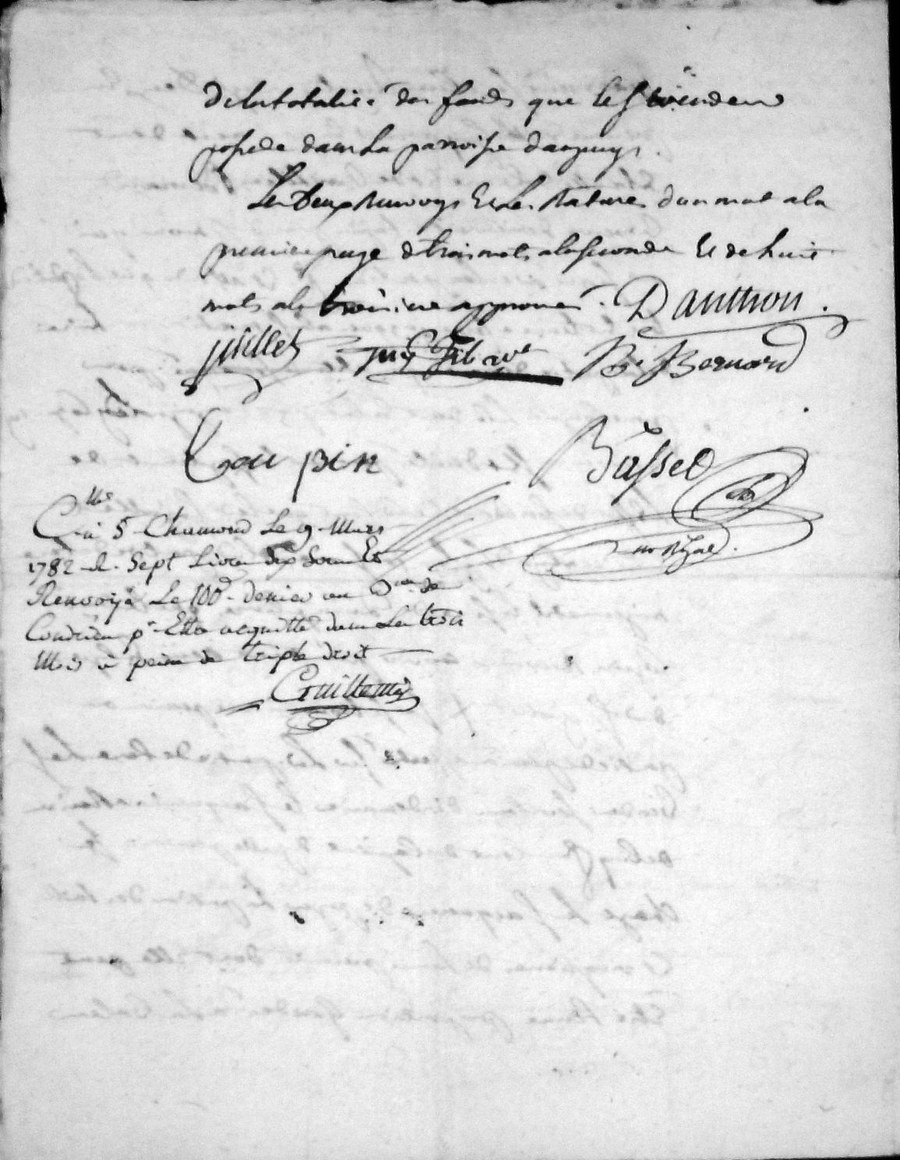 de la totalité des fonds que le S. vendeur
possede dans la parroisse dampuys.
Les deux renvoys et les ratures d'un mot a la
premiere page de trois mots a la seconde et de huit
mots a la troisieme approuvés. Dauthon.
juillet B. Bernard
Coupin Bassel
Clle a St Chamond le 9 Mars
1782 R. Sept Livres dix sous Et
Renvoyé Le 100d. denier au Bau de
Condrieu pr Etre acquitté dans Les trois
Mois a peine de triple droit